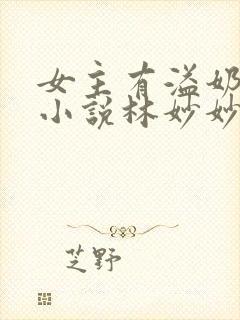 女主有溢奶
小说林妙妙
芝野